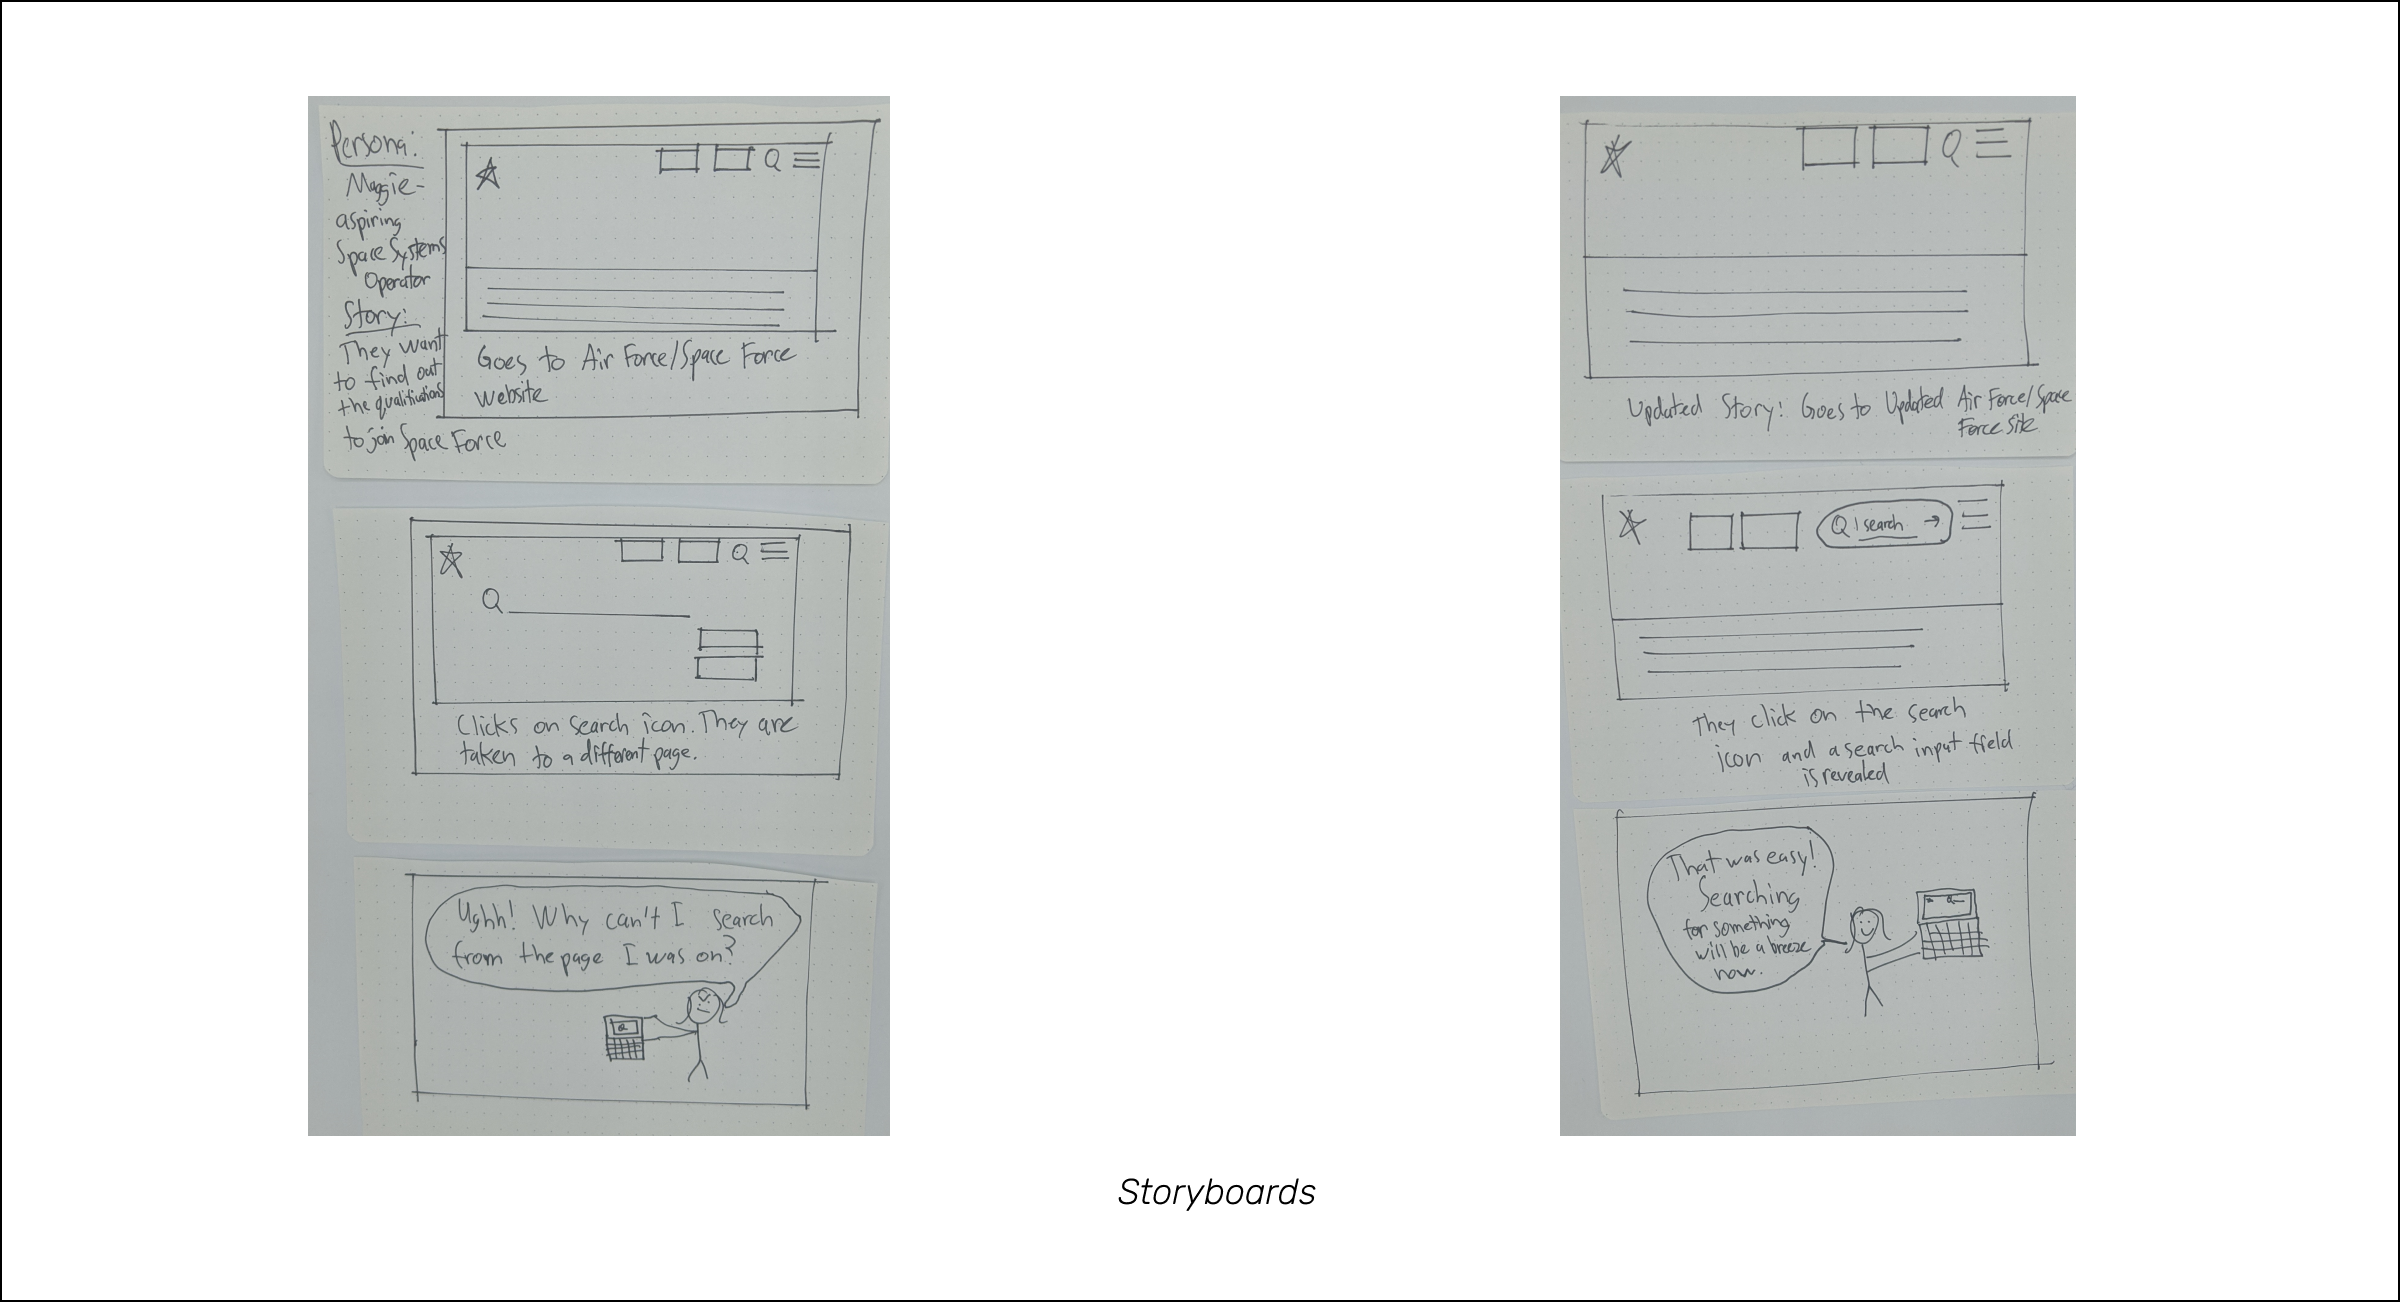 Persona:
Maggie-
aspiring
Space Systems
Operator
Story:
They want
to find out
the qualifications
to join Space Force
Goes to Air Force/Space Force
website
Clicks on search icon. They are
taken to a different page.
Ughh! Why can't I search
from the page I was on?
Updated Story: Goes to Updated Air Force/Space
Force Site
search
They click on the search
icon and a search input field
is revealed
That was easy!
Searching
for something
will be a breeze
now.
Storyboards